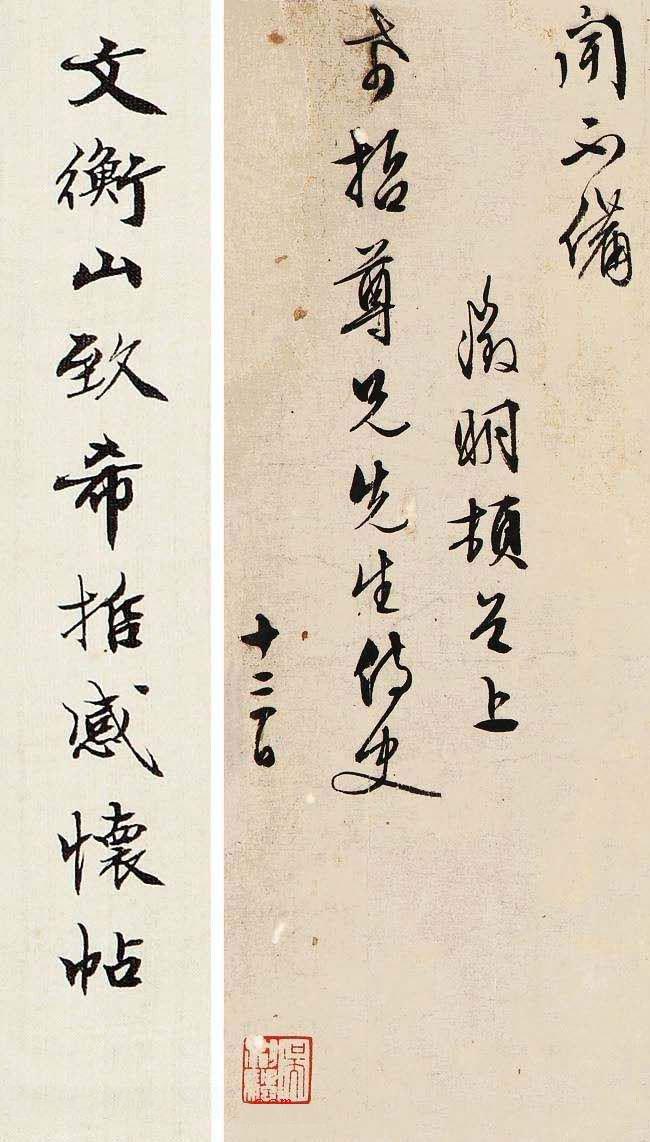 聞不備
徵明頓首上
希哲尊兄先生侍史
十二日
文衡山致希推感懷帖